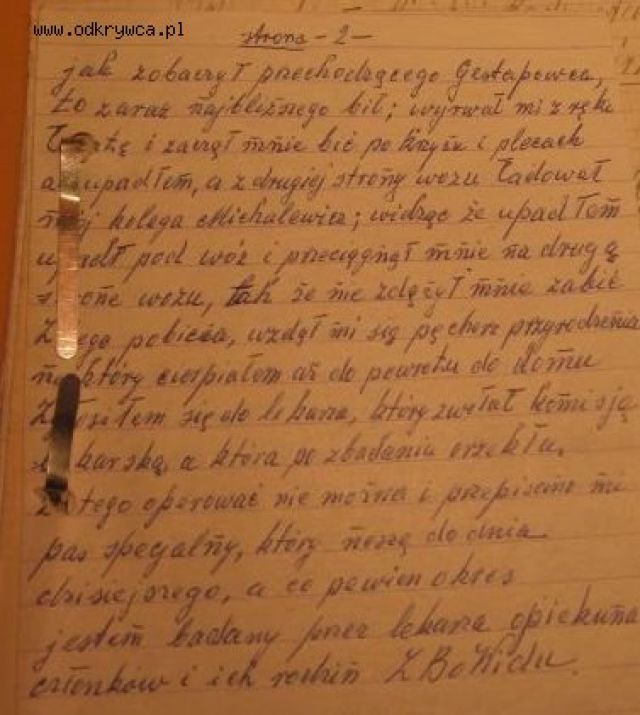 www.odkrywca.pl
strona -2-
jak zobaczył przechodzącego Gestapowca,
to zaraz najbliżnego bił; wyrwał mi z ręki
i zaczął mnie bić po krzyżu i plecach
upadłem, a z drugiej strony wozu ładował
mój kolega Michalewicz; widząc że upadłem
upadł pod wóz i przeciągnął mnie na drugą
stronę wozu, tak że nie zdążył mnie zabić
Z tego pobicia, wzdął mi się pęcherz przyrodzenia
na który cierpiałem aż do powrotu do domu
Zgłosiłem się do lekarza, który zwołał komisją
lekarską, a która po zbadaniu orzekła,
że tego operować nie można i przepisano mi
pas specjalny, który noszę do dnia
dzisiejszego, a co pewien okres
jestem badany przez lekarza opiekuna
członków i ich rodzin ZBoWidu.